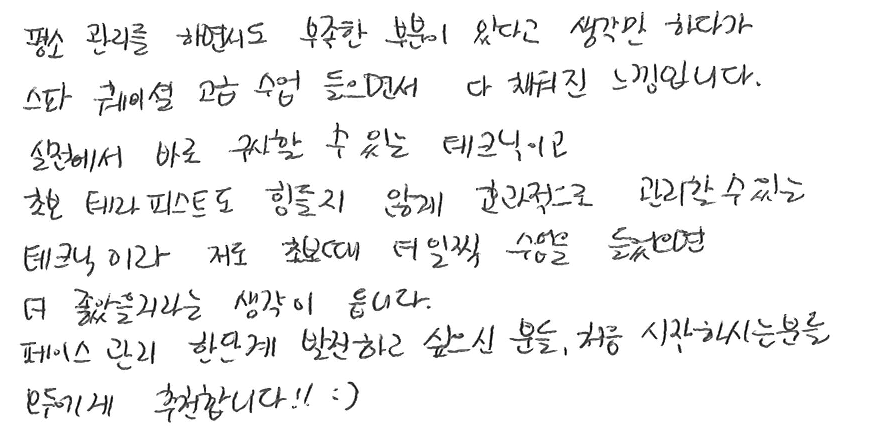 평소 관리를 하면서도 부족한 부분이 있다고 생각만 하다가
스파 훼이셜 고급 수업 들으면서 다 채워진 느낌입니다.
실전에서 바로 구사할 수 있는 테크닉이고
초보 테라피스트도 힘들지 않게 효과적으로 관리할 수 있는
테크닉이라 저도 초보때 더 일찍 수업을 들었으면
더 좋았을거라는 생각이 듭니다.
페이스 관리 한단계 발전하고 싶으신 분들, 처음 시작하시는분들
모두에게 추천합니다!! :)